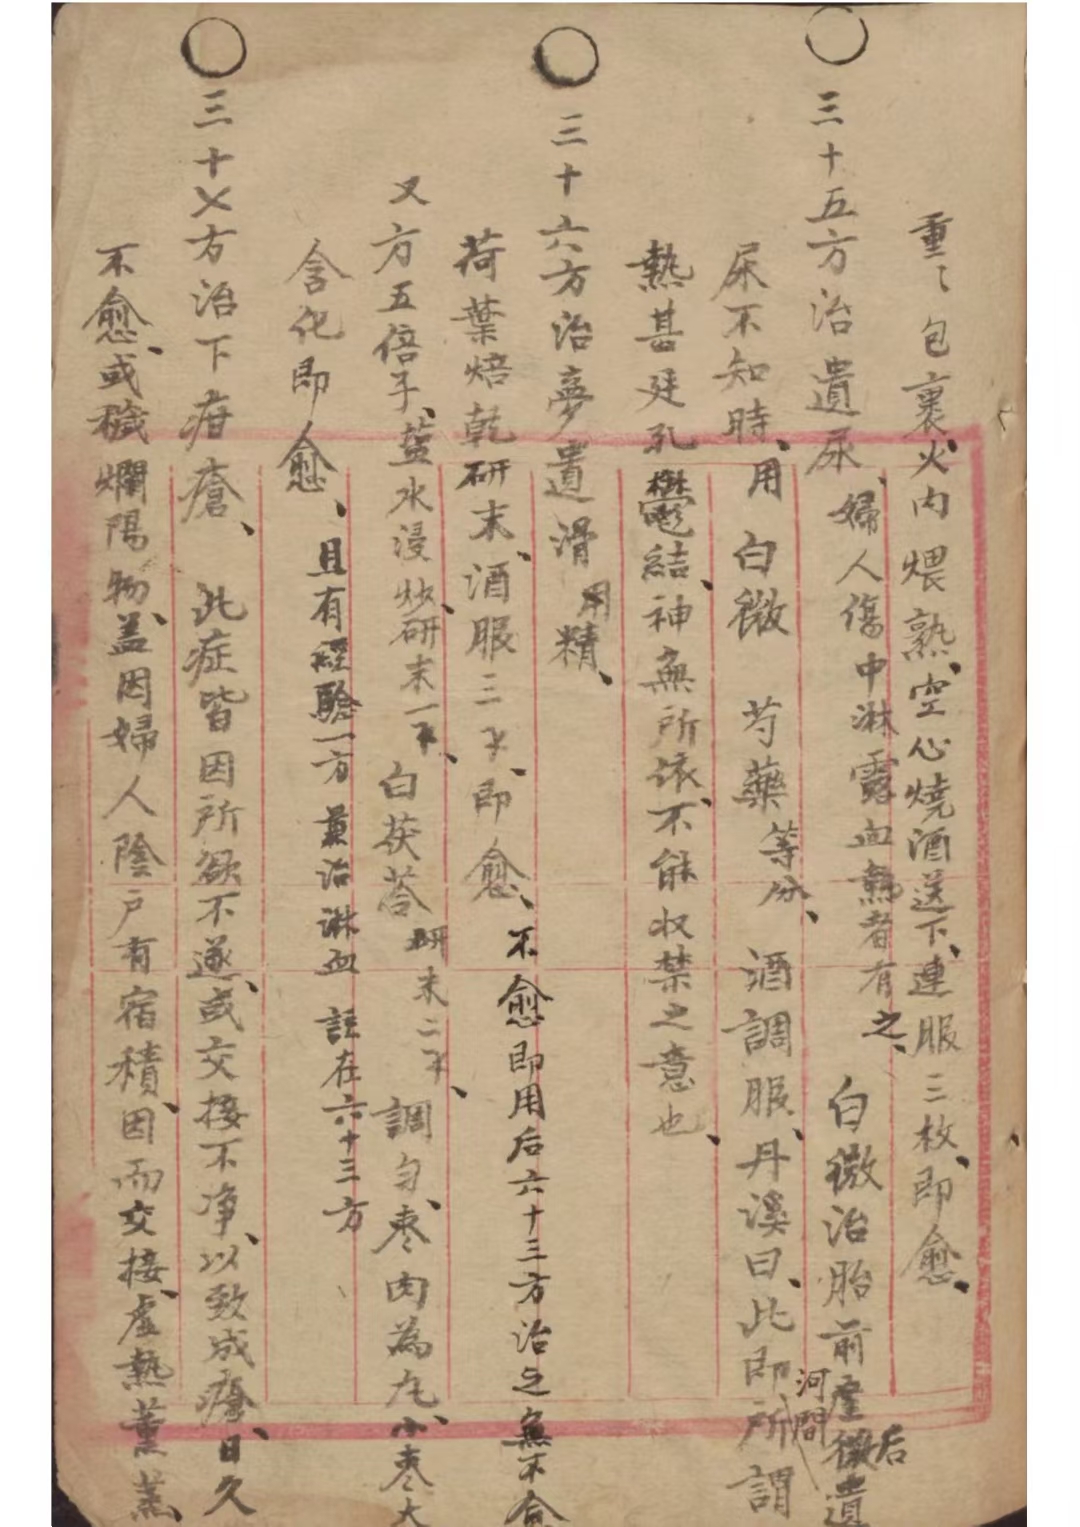 重々包裹火内煨熟、空心燒酒送下、連服三枚、即愈、
三十五方治遺尿、婦人傷中淋露血熱者有之、白微治胎前產後遺
尿不知時、用白微 芍藥等分、酒調服、丹溪曰、此即河間所謂
熱甚廷孔鬱結、神無所依、不能收禁之意也、
三十六方治夢遺滑精、用
荷葉焙乾研末、酒服三、即愈、不愈即用后六十三方治之無不愈
又方五倍子、藍水浸炒、研末一、白茯苓研末二、調勻、枣肉為丸、小枣大
含化即愈、且有經驗一方兼治淋血註在六十三方
三十乂方治下疳瘡、此症皆因所欲不遂、或交接不净、以致成瘡、日久
不愈、或穢爛陽物、盖因婦人陰户有宿積、因而交接、虛熱薰蒸、